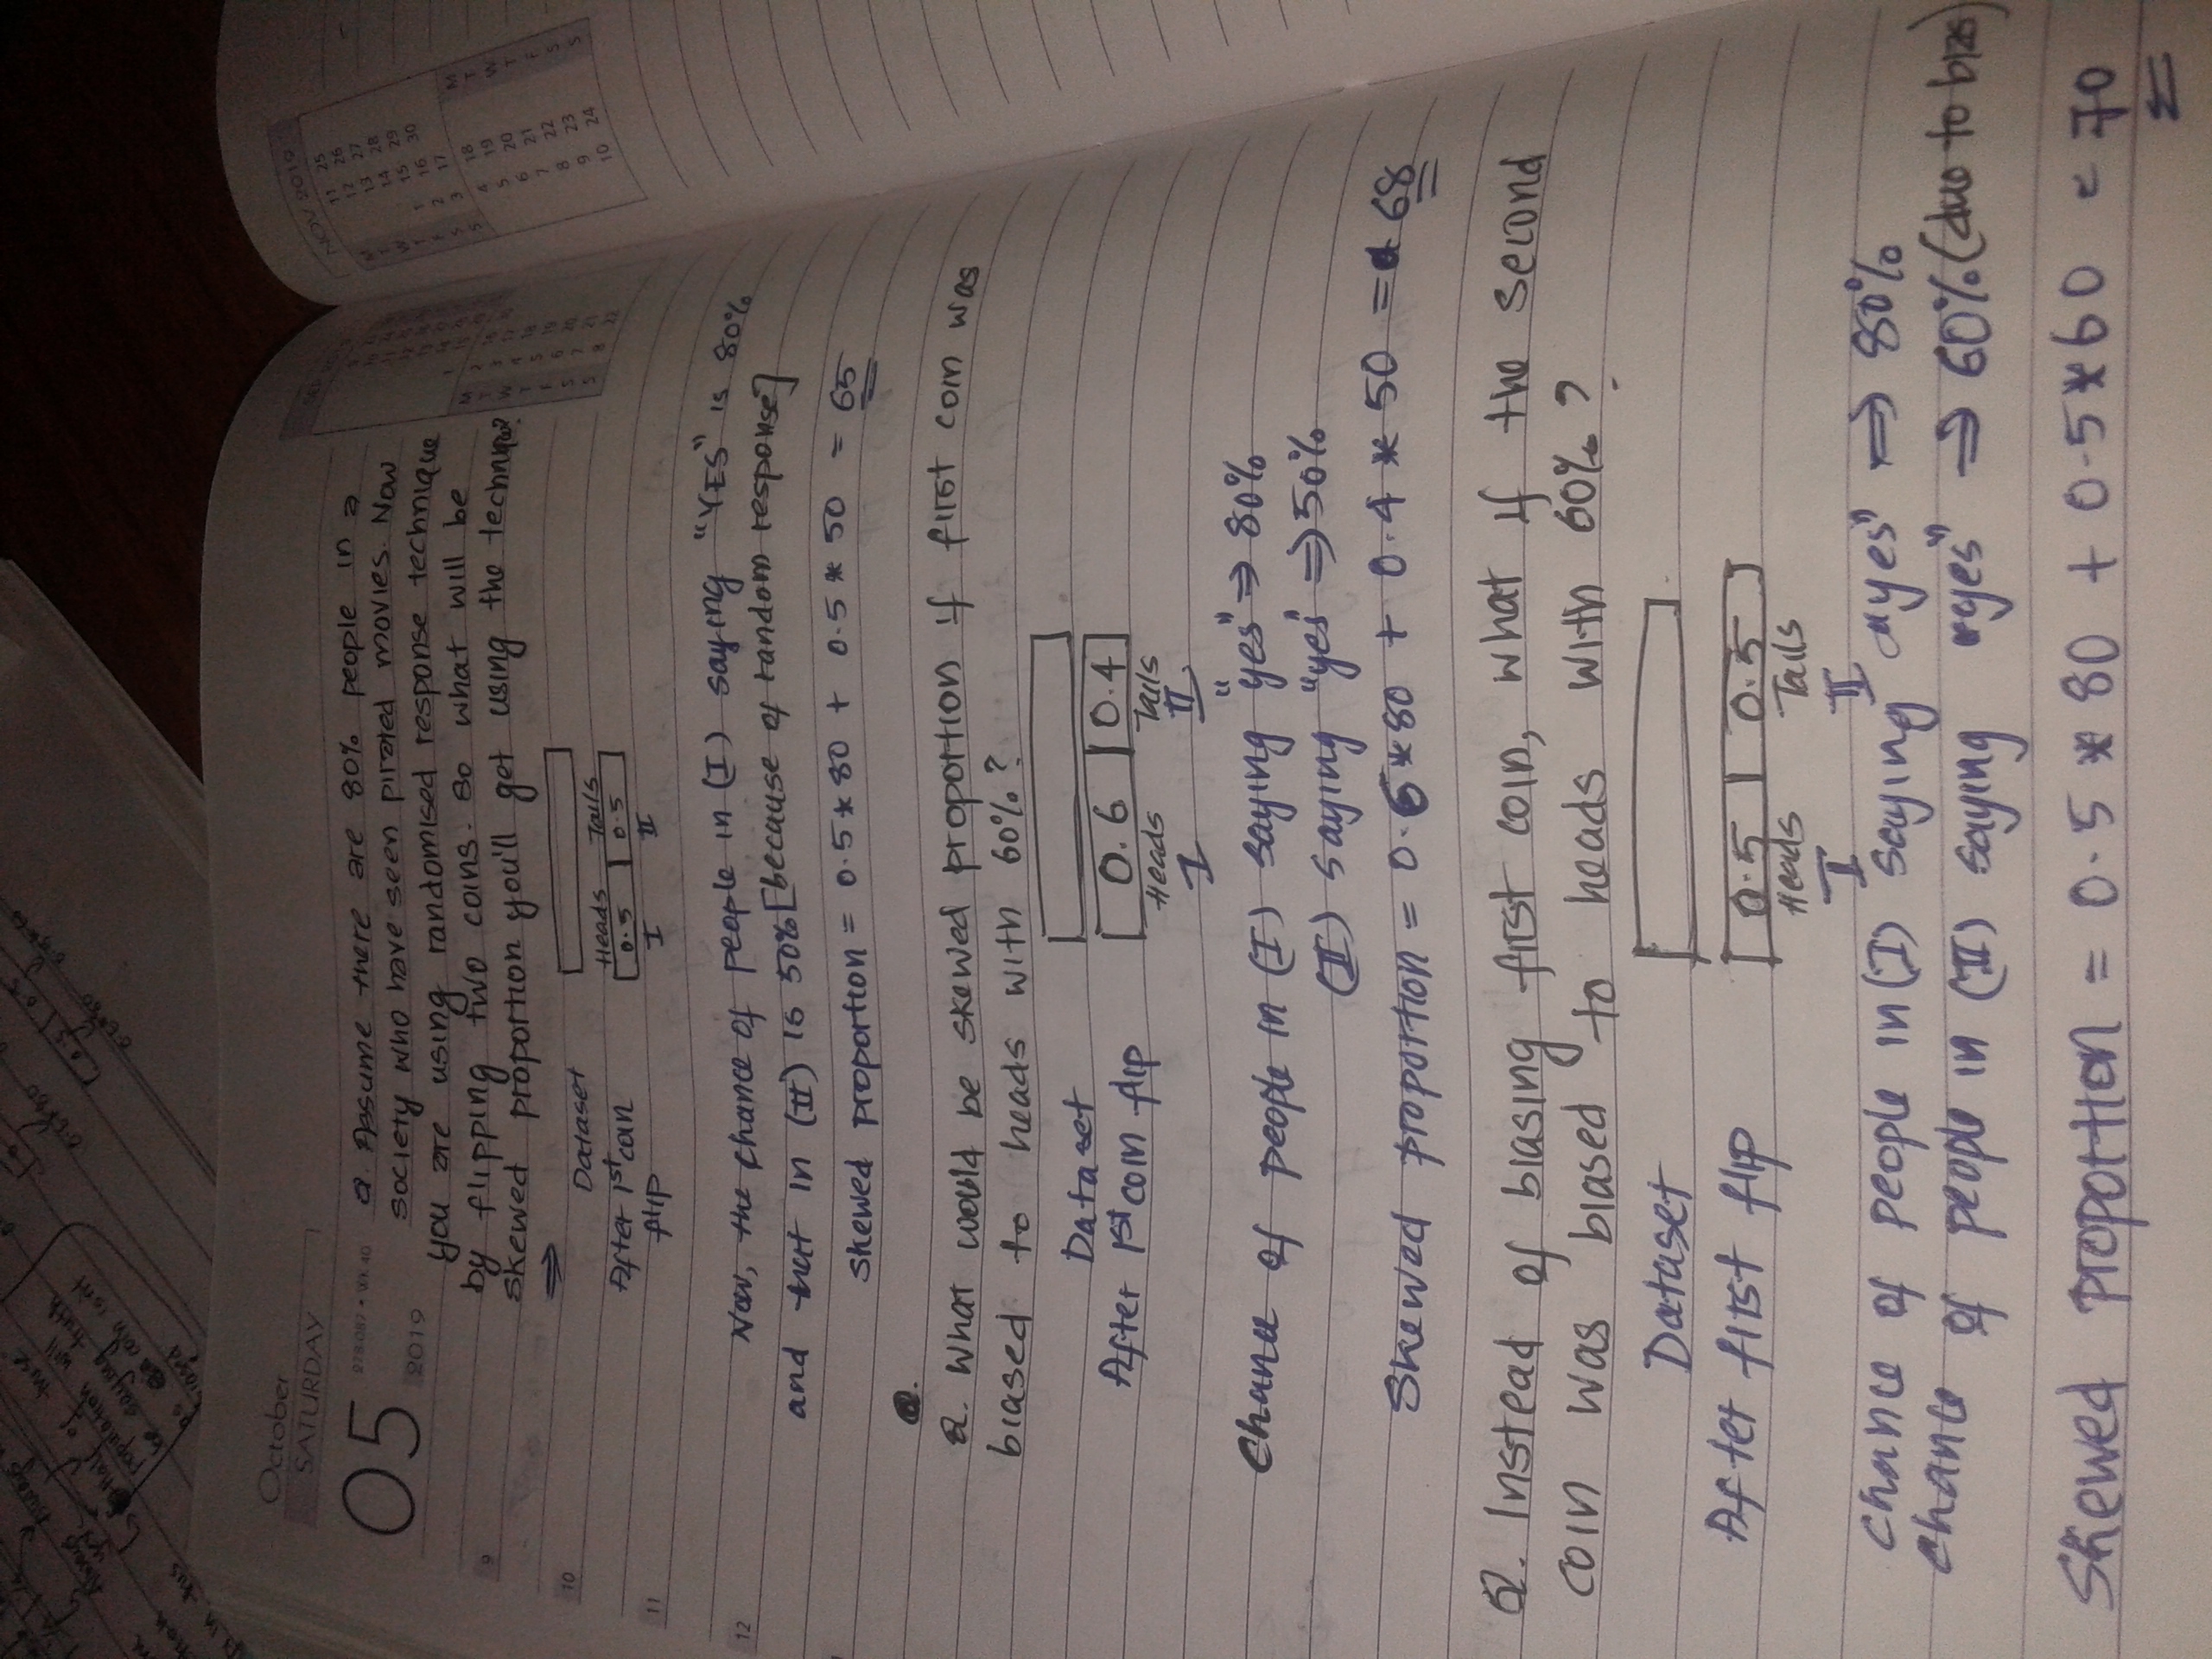 Always
yes
Half of
population will
be saying truth
coin isn't
in this
0.5
0.5
October
SATURDAY
05
278.087 • WK 40
2019
Q. Assume there are 80% people in a
society who have seen pirated movies. Now
you are using randomised response technique
by flipping two coins. So what will be
skewed proportion you'll get using the technique?
⇒
9
10
11
12
Dataset
Heads Tails
After 1st coin 0.5 0.5
flip I II
Now, the chance of people in (I) saying "YES" is 80%
and that in (II) is 50% [because of random response]
Skewed proportion = 0.5 * 80 + 0.5 * 50 = 65
Q. What would be skewed proportion if first coin was
biased to heads with 60%?
Dataset
After 1st coin flip 0.6 0.4
Heads Tails
I II
Chance of people in (I) saying "yes" ⇒ 80%
(II) saying "yes" ⇒ 50%
Skewed proportion = 0.6 * 80 + 0.4 * 50 = 68
Q. Instead of biasing first coin, what if the second
coin was biased to heads with 60%?
Dataset
After first flip 0.5 0.5
Heads Tails
I II
Chance of people in (I) saying "yes" ⇒ 80%
Chance of people in (II) saying "yes" ⇒ 60% (due to bias)
Skewed proportion = 0.5 * 80 + 0.5 * 60 = 70
NOV 2019
M 11 25
T 12 26
W 13 27
T 14 28
F 1 15 29
S 2 16 30
S 3 17
M 4 18
T 5 19
W 6 20
T 7 21
F 8 22
S 9 23
S 10 24